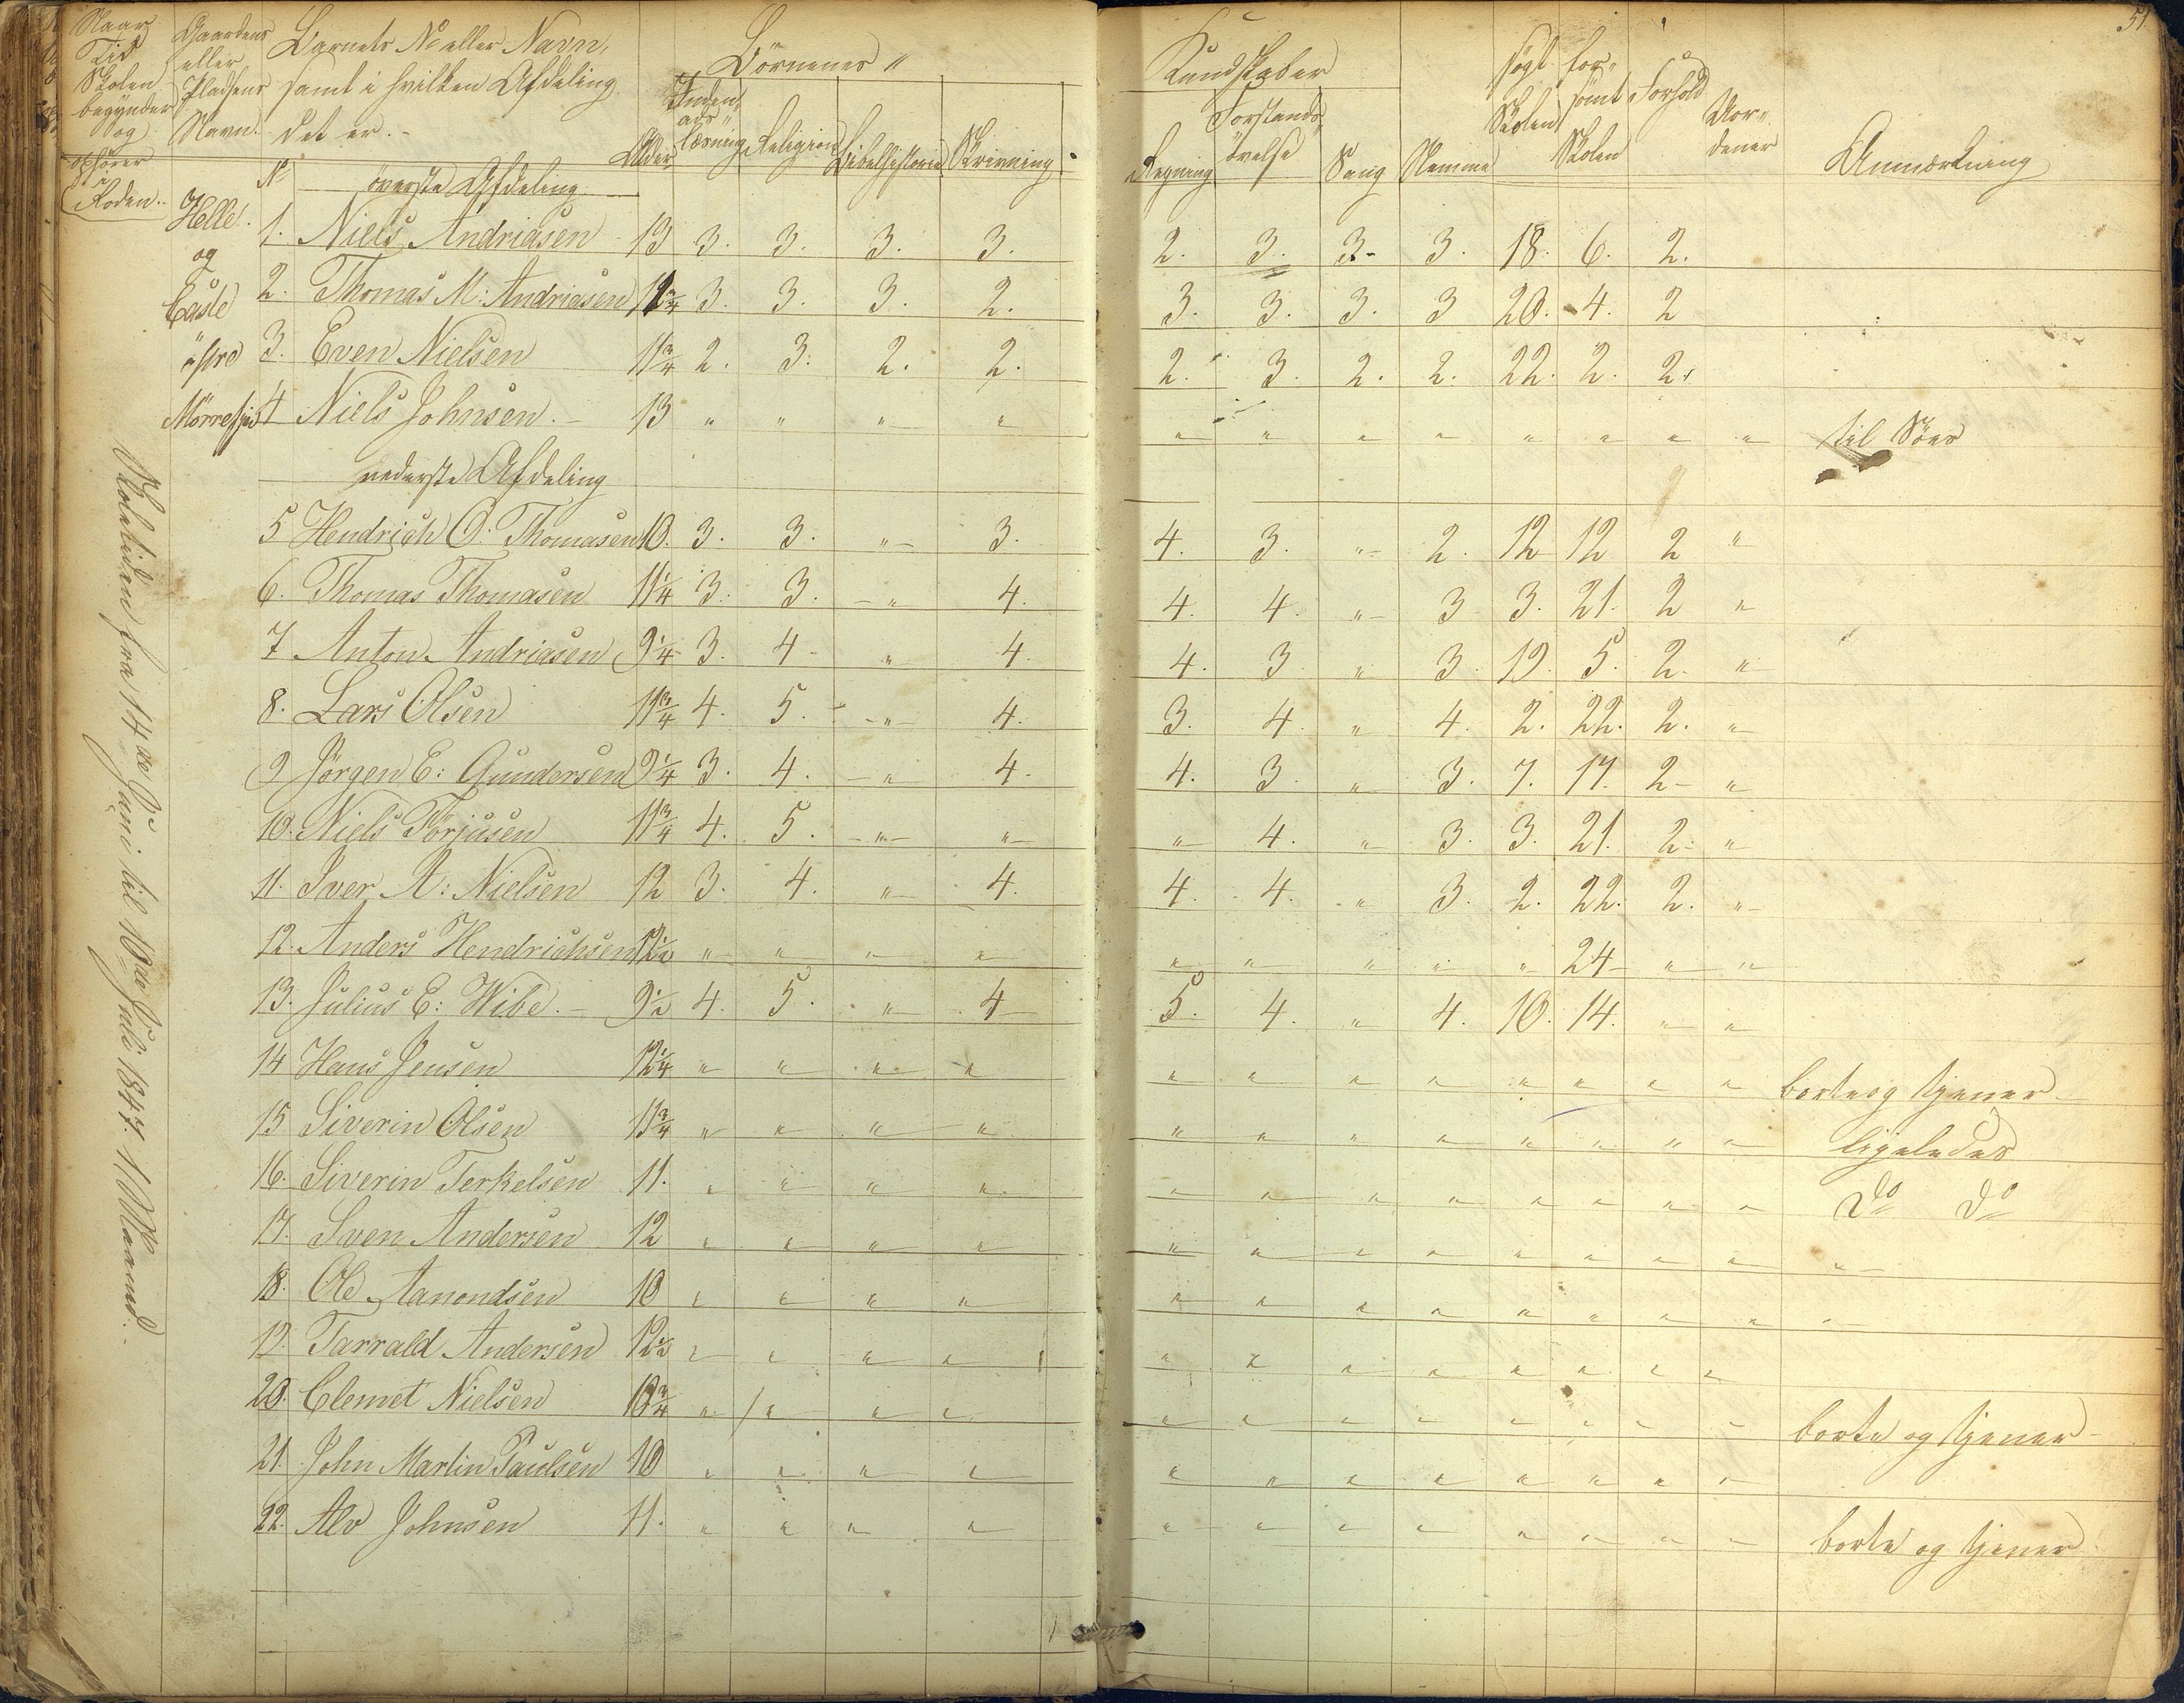 51.
Naar Tid Skolen begynder og ophører i Roden.
Gaardens eller Pladsens Navn.
Barnets No eller Navn, samt i hvilken Afdeling det er.-
Børnenes "
Kundskaber
Alder
Inden- læsning
Religion
Bibelhistorie
Skrivning
Regning
Forstands øvelse
Sang
Nemme
søgt Skolen
for- sømt Skolen
Forhold
Anmærkning
No øverste Afdeling
Helle og Østre
1. Niels Andriasen 13 3. 3. 3. 3. 2. 3. 3- 3. 18. 6. 2.
2. Thomas M: Andriasen 3. 3. 3. 2. 3. 3. 3. 3 20. 4. 2
3. Even Nielsen 11 3/4 2. 3. 2. 2. 2. 3. 2. 2. 22. 2. 2.
4 Niels Johnsen.- 13 " " " " " " " " " " " " til Søes
nederste Afdeling
5 Hendrich O: Thomasen 10. 3. 3. " 3. 4. 3. " 2. 12 12 2 "
6. Thomas Thomasen 11 1/4 3. 3. " 4. 4. 4. " 3 3. 21. 2 "
7 Anton Andriasen 9 1/4 3. 4 " 4. 4. 3 " 3. 19. 5. 2. "
8. Lars Olsen 11 3/4 4. 5. " 4. 3. 4. " 4. 2. 22. 2. "
9 Jörgen E: Gundersen 9 1/4 3. 4. " 4. 4. 3 " 3. 7. 17. 2 "
10. Niels Törjusen 11 3/4 4. 5. " " " 4. " 3. 3. 21. 2. "
11. Iver A: Nielsen 12 3. 4. " 4. 4. 4. " 3. 2. 22. 2. "
12. Anders Hendrichsen 12 1/2 " " " " " " " " " 24 " "
13. Julius E: Wibe.- 9 1/2 4. 5. " 4 5. 4. " 4. 10. 14. " "
14 Hans Jensen 12 1/4 " " " " " " " " " " " " borte og tjener
15 Siverin Olsen 11 3/4 " " " " " " " " " " " " ligeledes
16. Siverin Terkelsen 11. " " " " " " " " " " " " do do
17. Sven Andersen 12 " " " " " " " " " " " " "
18. Ole Aanondsen 10 " " " " " " " " " " " " "
19. Tarrald Andersen 12 1/2 " " " " " " " " " " " "
20. Clemet Nielsen 10 3/4 " " " " " " " " " " " " borte og tjener
21. John Martin Paulsen 10 " " " " " " " " " " " "
22. Alv Johnsen 11. " " " " " " " " " " " " borte og tjener
Skoletiden fra 14de Juni til 10de Juli 1847. 1 Maaned.-